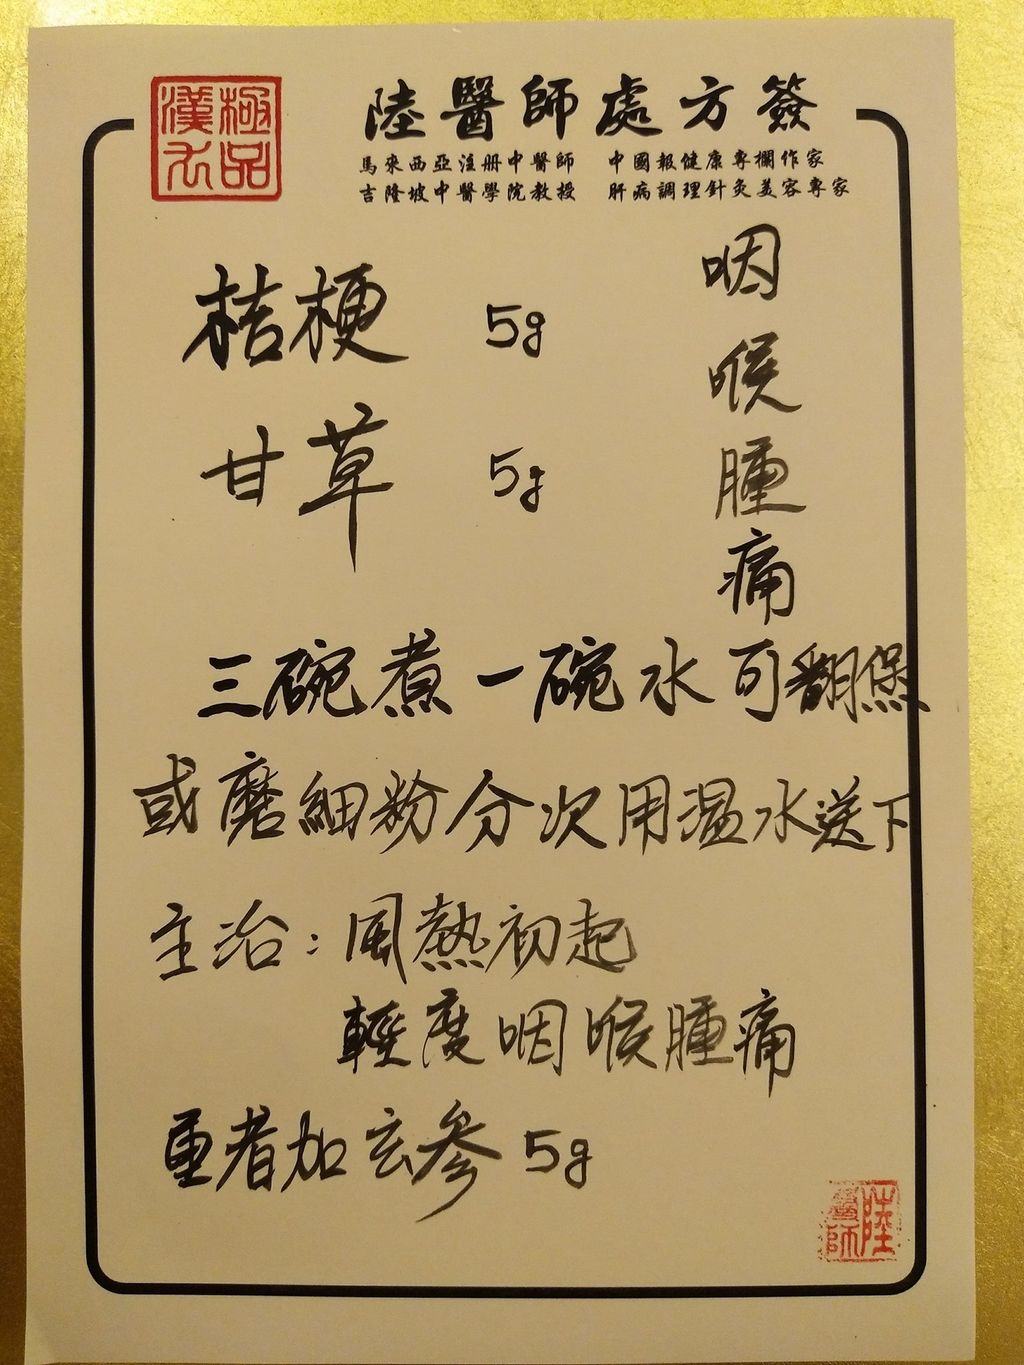 極品
漢方
陸醫師處方簽
馬來西亞注冊中醫師 中國報健康專欄作家
吉隆坡中醫學院教授 肝病調理針灸美容專家
咽喉腫痛
桔梗 5g
甘草 5g
三碗煮一碗水可翻煲
或磨細粉分次用溫水送下
主治：風熱初起
輕度咽喉腫痛
重者加玄參 5g
陸
醫師